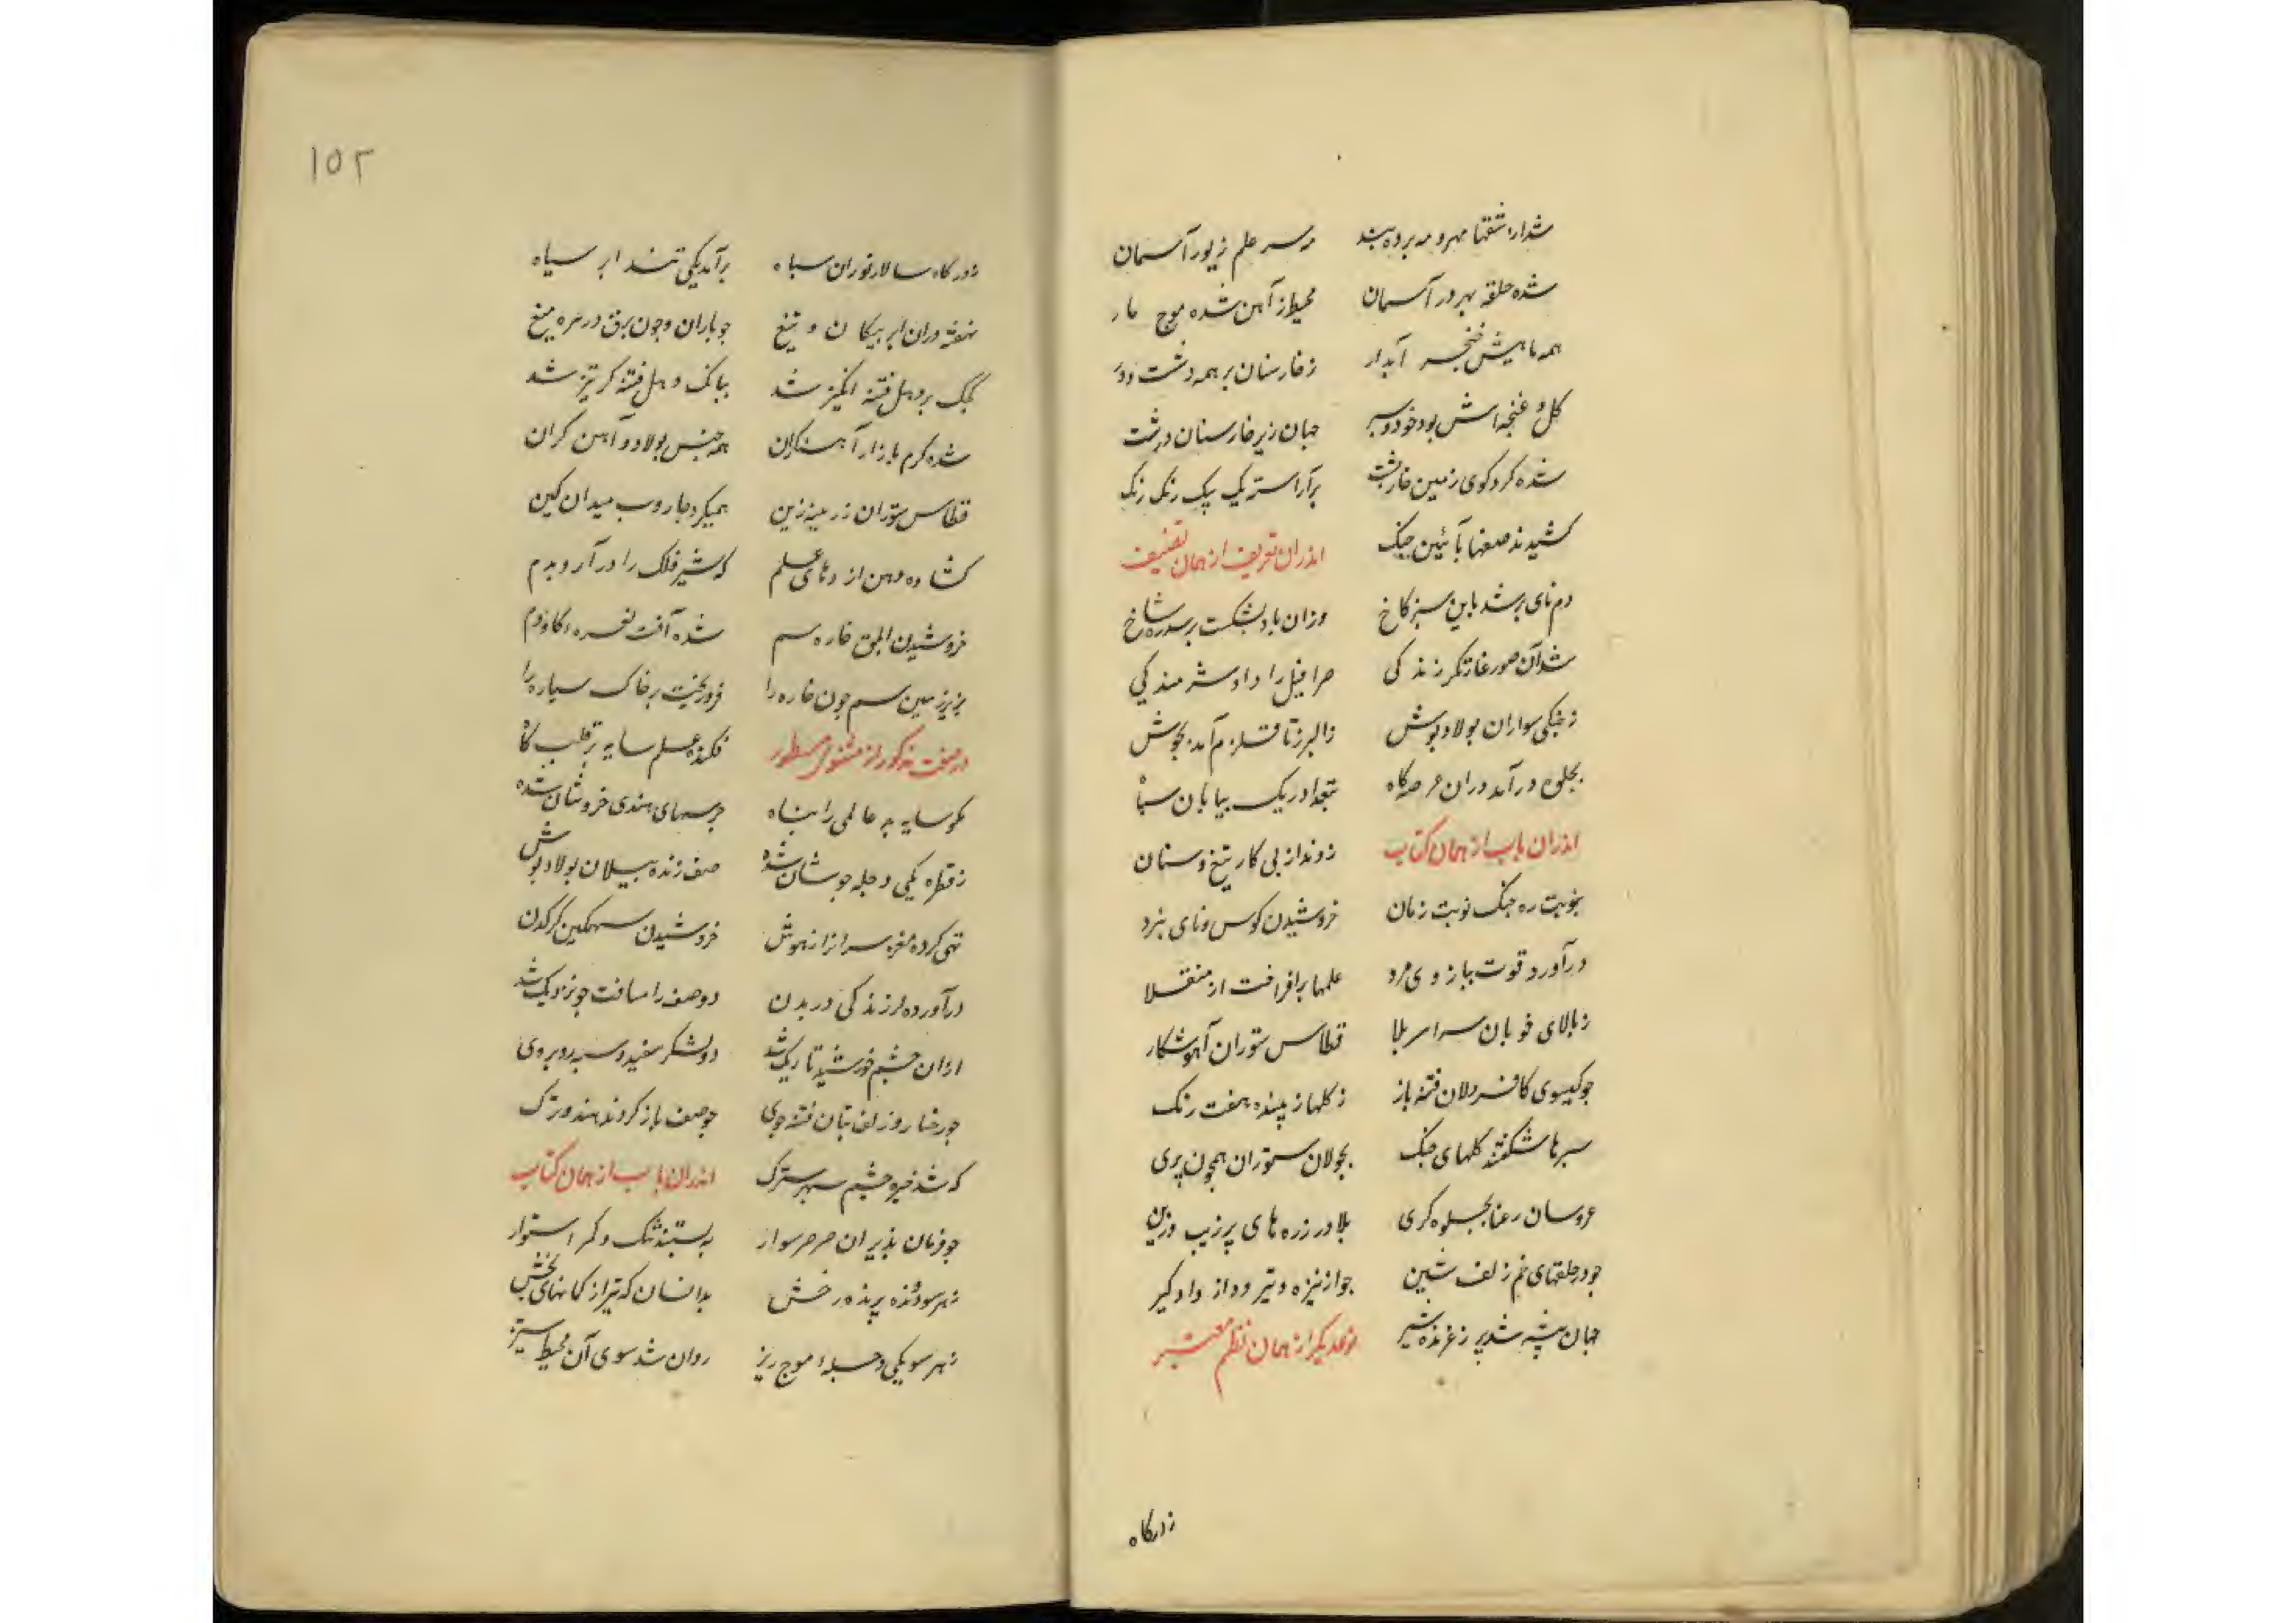 شد از شقها مهر و مه پرده بند
مه سر علم زیور آسمان
شده حلقه بر در آسمان
محیط از آهن شده موج مار
همه ماهیش خنجر آبدار
ز خار سنان بر همه دشت و در
کل و غنچه‌اش بود خود و سپر
جهان زیر خار سنان درشت
شده کرد کوی زمین خارپشت
برآراست یک بیک رنک رنک
کشیدند صفها بآئین جنک
اندران تعریف از همان تصنیف
دم نای بر شد باین سبز کاخ
وزان باد بشکست بر سدره شاخ
شد آن صور غارتکر زندکی
سرافیل را داد شرمندکی
ز جنکی سواران بولاد پوش
ز البرز تا قلزم آمد بجوش
بجلوه درآمد دران عرصه کاه
بتعداد ریک بیابان سپاه
اندران باب از همان کتاب
زوند از پی کار تیغ و سنان
بنوبت ره جنک نوبت زنان
خروشیدن کوس و نای نبرد
درآورد قوت ببازوی مرد
علمها برافراخت از منقلا
ز بالای خوبان سراسر بلا
قطاس ستوران آهو شکار
جو کیسوی کافر دلان فتنه باز
ز کلها زیبنده هفت رنک
سپرها شکفتند کلهای جنک
بجولان ستوران همجون پری
عروسان رعنا بجلوه کری
یلا در زره‌های پر زیب و زین
جو در حلقهای خم زلف شین
جو از نیزه و تیر و داز و دار و کیر
جهان بیشه شد پر ز غرنده شیر
نوعدیکر از همان نظم معتبر
زدرکاه
۱۵۲
زدرکاه سالار توران سپاه
برآمد یکی تند ابر سیاه
نهفته دران ابر پیکان و تیغ
جو باران و جون برق در تیره میغ
کجک بر دهل فتنه انکیز شد
ببانک دهل فتنه کر تیز شد
شده کرم بازار آهنکران
همه جنس بولاد و آهن کران
قطاس ستوران زرینه زین
همیکرد جاروب میدان کین
کشاده دهن اژدهای علم
که شیر فلک را درآرد بدم
خروشیدن ابلق خاره سم
شده آفت نعره کاودم
بریز زمین سم جون خاره را
فرو ریخت بر خاک سیاره را
در صفت مذکور از مثنوی مسطور
فکنده علم سایه بر قلب کاه
مکو سایه به عالمی را پناه
جرسهای هندی خروشان شده
ز قطره یکی دجله جوشان شده
صف زنده پیلان بولاد پوش
تهی کرده مغز سرانرا ز هوش
خروشیدن سهمکین کرکدن
درآورده لرزندکی در بدن
دو صف را مسافت جو نزدیک شد
ازان جشم خورشید تاریک شد
دو لشکر سفید و سیه روبروی
جو رخسار و زلف بتان فتنه جوی
جو صف باز کردند هند و ترک
که شد خیره جشم سپهر سترک
اندران باب از همان کتاب
جو فرمان پذیران صرصر سوار
ببستند تنک و کمر استوار
ز هر سو دونده پرنده رخش
بدانسان که تیر از کمانهای بخش
ز هر سو یکی دجله موج ریز
روان شد سوی آن محیط ستیز